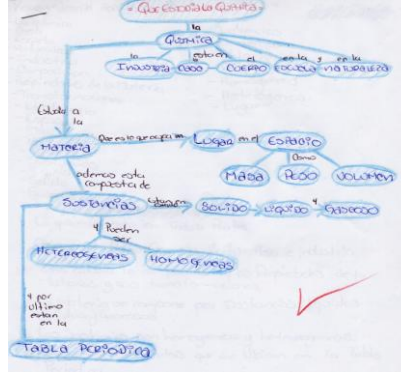 la
QUIMICA
la
esta en
el
en la y en la
INDUSTRIA
CUERPO
ESCUELA
NATURALEZA
Estudia a
la
MATERIA
Que es lo que ocupa un
LUGAR
en el
ESPACIO
Como
MASA
PESO
VOLUMEN
ademas esta
compuesta de
SUSTANCIAS
SOLIDO
LIQUIDO
y
GASEOSO
y Pueden
ser
HETEROGENEAS
HOMOGENEAS
y por
ultimo
estan
en la
TABLA PERIODICA